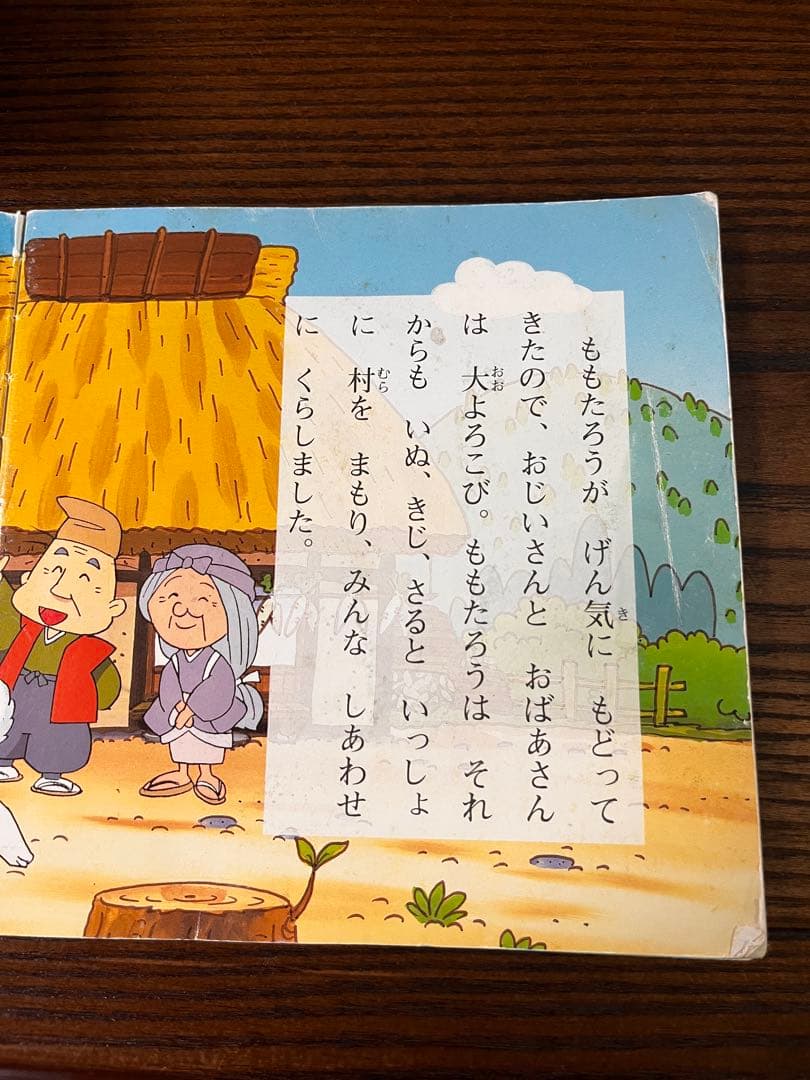 ももたろうが　げん気に　もどって
きたので、おじいさんと　おばあさん
は　大よろこび。ももたろうは　それ
からも　いぬ、きじ、さると　いっしょ
に　村を　まもり、みんな　しあわせ
に　くらしました。